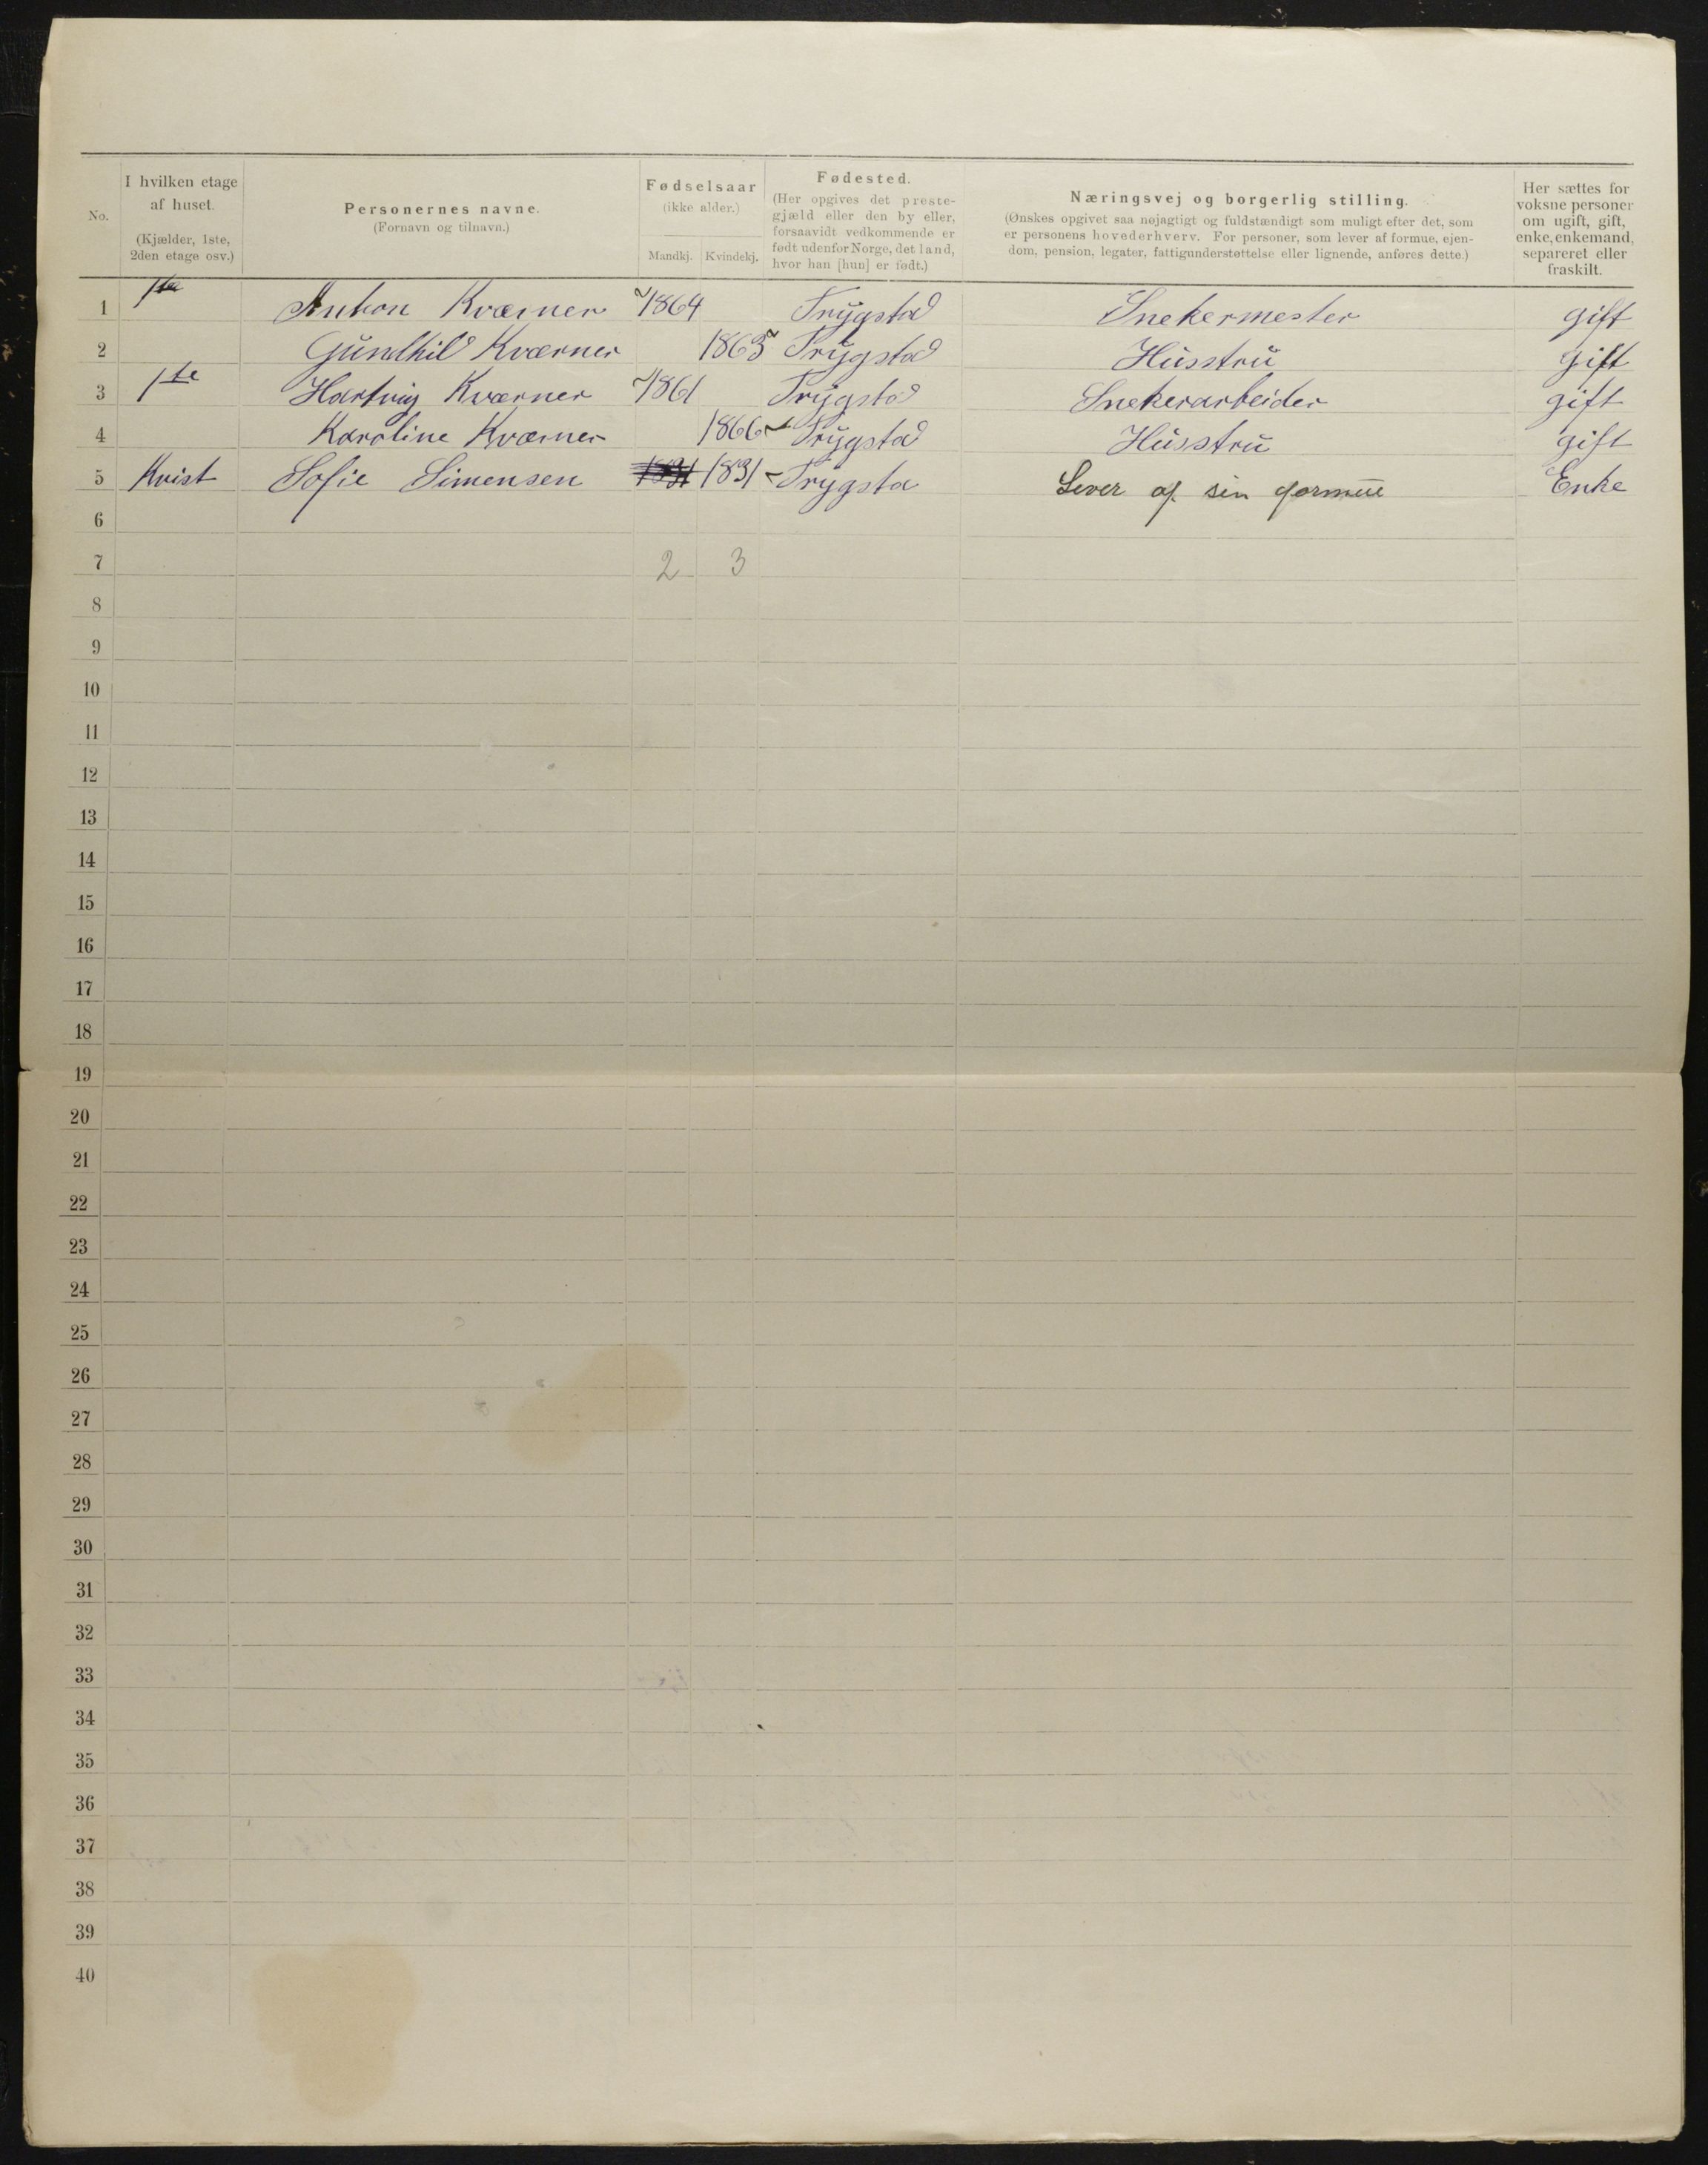 No.
I hvilken etage
af huset.
(Kjælder, 1ste,
2den etage osv.)
Personernes navne.
(Fornavn og tilnavn.)
Fødselsaar
(ikke alder.)
Mandkj. Kvindekj.
Fødested.
(Her opgives det preste-
gjæld eller den by eller,
forsaavidt vedkommende er
født udenfor Norge, det land,
hvor han [hun] er født.)
Næringsvej og borgerlig stilling.
(Ønskes opgivet saa nøjagtigt og fuldstændigt som muligt efter det, som
er personens hovederhverv. For personer, som lever af formue, ejen-
dom, pension, legater, fattigunderstøttelse eller lignende, anføres dette.)
Her sættes for
voksne personer
om ugift, gift,
enke, enkemand,
separeret eller
fraskilt.
1 1ste Anton Kværner 1864 Trygstad Snekermester gift
2 Gundhild Kværner 1863 Trygstad Husstru gift
3 1ste Hartvig Kværner 1861 Trygstad Snekerarbeider gift
4 Karoline Kværner 1866 Trygstad Husstru gift
5 Kvist Sofie Simensen 1831 1831 Trygsta Lever af sin formue Enke
6
7 2 3
8
9
10
11
12
13
14
15
16
17
18
19
20
21
22
23
24
25
26
27
28
29
30
31
32
33
34
35
36
37
38
39
40